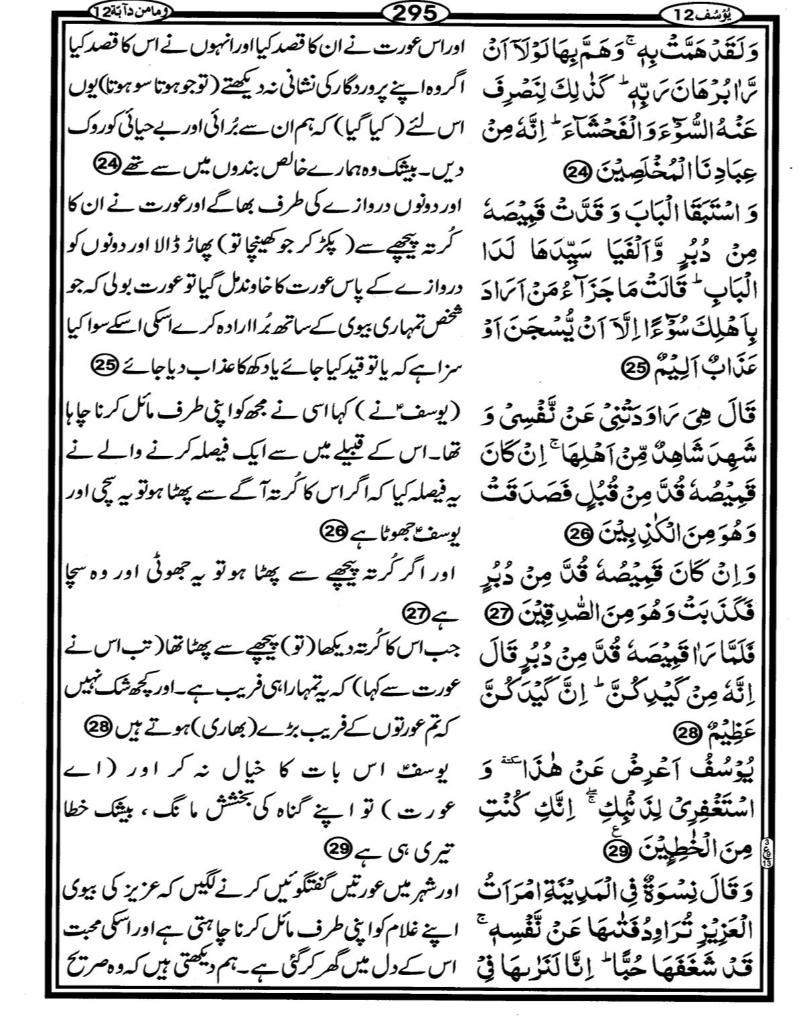 يُوْسُف 12
295
وَمَا مِنْ دَآبَّة 12
وَلَقَدْ هَمَّتْ بِهٖ ۚ وَهَمَّ بِهَا لَوْلَاۤ اَنْ
رَّاٰ بُرْهَانَ رَبِّهٖ ؕ كَذٰلِكَ لِنَصْرِفَ
عَنْهُ السُّوْٓءَ وَالْفَحْشَآءَ ؕ اِنَّهٗ مِنْ
عِبَادِنَا الْمُخْلَصِيْنَ 24
وَ اسْتَبَقَا الْبَابَ وَ قَدَّتْ قَمِيْصَهٗ
مِنْ دُبُرٍ وَّاَلْفَيَا سَيِّدَهَا لَدَا
الْبَابِ ؕ قَالَتْ مَا جَزَآءُ مَنْ اَرَادَ
بِاَهْلِكَ سُوْٓءًا اِلَّاۤ اَنْ يُّسْجَنَ اَوْ
عَذَابٌ اَلِيْمٌ 25
قَالَ هِيَ رَاوَدَتْنِيْ عَنْ نَّفْسِيْ وَ
شَهِدَ شَاهِدٌ مِّنْ اَهْلِهَا ۚ اِنْ كَانَ
قَمِيْصُهٗ قُدَّ مِنْ قُبُلٍ فَصَدَقَتْ
وَهُوَ مِنَ الْكٰذِبِيْنَ 26
وَاِنْ كَانَ قَمِيْصُهٗ قُدَّ مِنْ دُبُرٍ
فَكَذَبَتْ وَهُوَ مِنَ الصّٰدِقِيْنَ 27
فَلَمَّا رَاٰ قَمِيْصَهٗ قُدَّ مِنْ دُبُرٍ قَالَ
اِنَّهٗ مِنْ كَيْدِكُنَّ ؕ اِنَّ كَيْدَكُنَّ
عَظِيْمٌ 28
يُوْسُفُ اَعْرِضْ عَنْ هٰذَا ٚ وَ
اسْتَغْفِرِيْ لِذَنْۢبِكِ ۖۚ اِنَّكِ كُنْتِ
مِنَ الْخٰطِـِٕيْنَ 29
وَقَالَ نِسْوَةٌ فِي الْمَدِيْنَةِ امْرَاَتُ
الْعَزِيْزِ تُرَاوِدُ فَتٰىهَا عَنْ نَّفْسِهٖ ۚ
قَدْ شَغَفَهَا حُبًّا ؕ اِنَّا لَنَرٰىهَا فِيْ
اور اس عورت نے ان کا قصد کیا اور انہوں نے اس کا قصد کیا
اگر وہ اپنے پروردگار کی نشانی نہ دیکھتے (تو جو ہوتا سو ہوتا) یوں
اس لئے ( کیا گیا ) کہ ہم ان سے بُرائی اور بے حیائی کو روک
دیں۔ بیشک وہ ہمارے خالص بندوں میں سے تھے 24
اور دونوں دروازے کی طرف بھاگے اور عورت نے ان کا
کُرتہ پیچھے سے ( پکڑ کر جو کھینچا تو) پھاڑ ڈالا اور دونوں کو
دروازے کے پاس عورت کا خاوند مل گیا تو عورت بولی کہ جو
شخص تمہاری بیوی کے ساتھ بُرا ارادہ کرے اسکی اسکے سوا کیا
سزا ہے کہ یا تو قید کیا جائے یا دکھ کا عذاب دیا جائے 25
(یوسفؑ نے ) کہا اسی نے مجھ کو اپنی طرف مائل کرنا چاہا
تھا۔ اس کے قبیلے میں سے ایک فیصلہ کرنے والے نے
یہ فیصلہ کیا کہ اگر اس کا کُرتہ آگے سے پھٹا ہو تو یہ سچی اور
یوسفؑ جھوٹا ہے 26
اور اگر کُرتہ پیچھے سے پھٹا ہو تو یہ جھوٹی اور وہ سچا
ہے 27
جب اس کا کُرتہ دیکھا (تو) پیچھے سے پھٹا تھا (تب اس نے
عورت سے کہا) کہ یہ تمہارا ہی فریب ہے۔ اور کچھ شک نہیں
کہ تم عورتوں کے فریب بڑے (بھاری) ہوتے ہیں 28
یوسفؑ اس بات کا خیال نہ کر اور (اے
عورت ) تو اپنے گناہ کی بخشش مانگ ، بیشک خطا
تیری ہی ہے 29
اور شہر میں عورتیں گفتگوئیں کرنے لگیں کہ عزیز کی بیوی
اپنے غلام کو اپنی طرف مائل کرنا چاہتی ہے اور اسکی محبت
اس کے دل میں گھر کر گئی ہے۔ ہم دیکھتی ہیں کہ وہ صریح